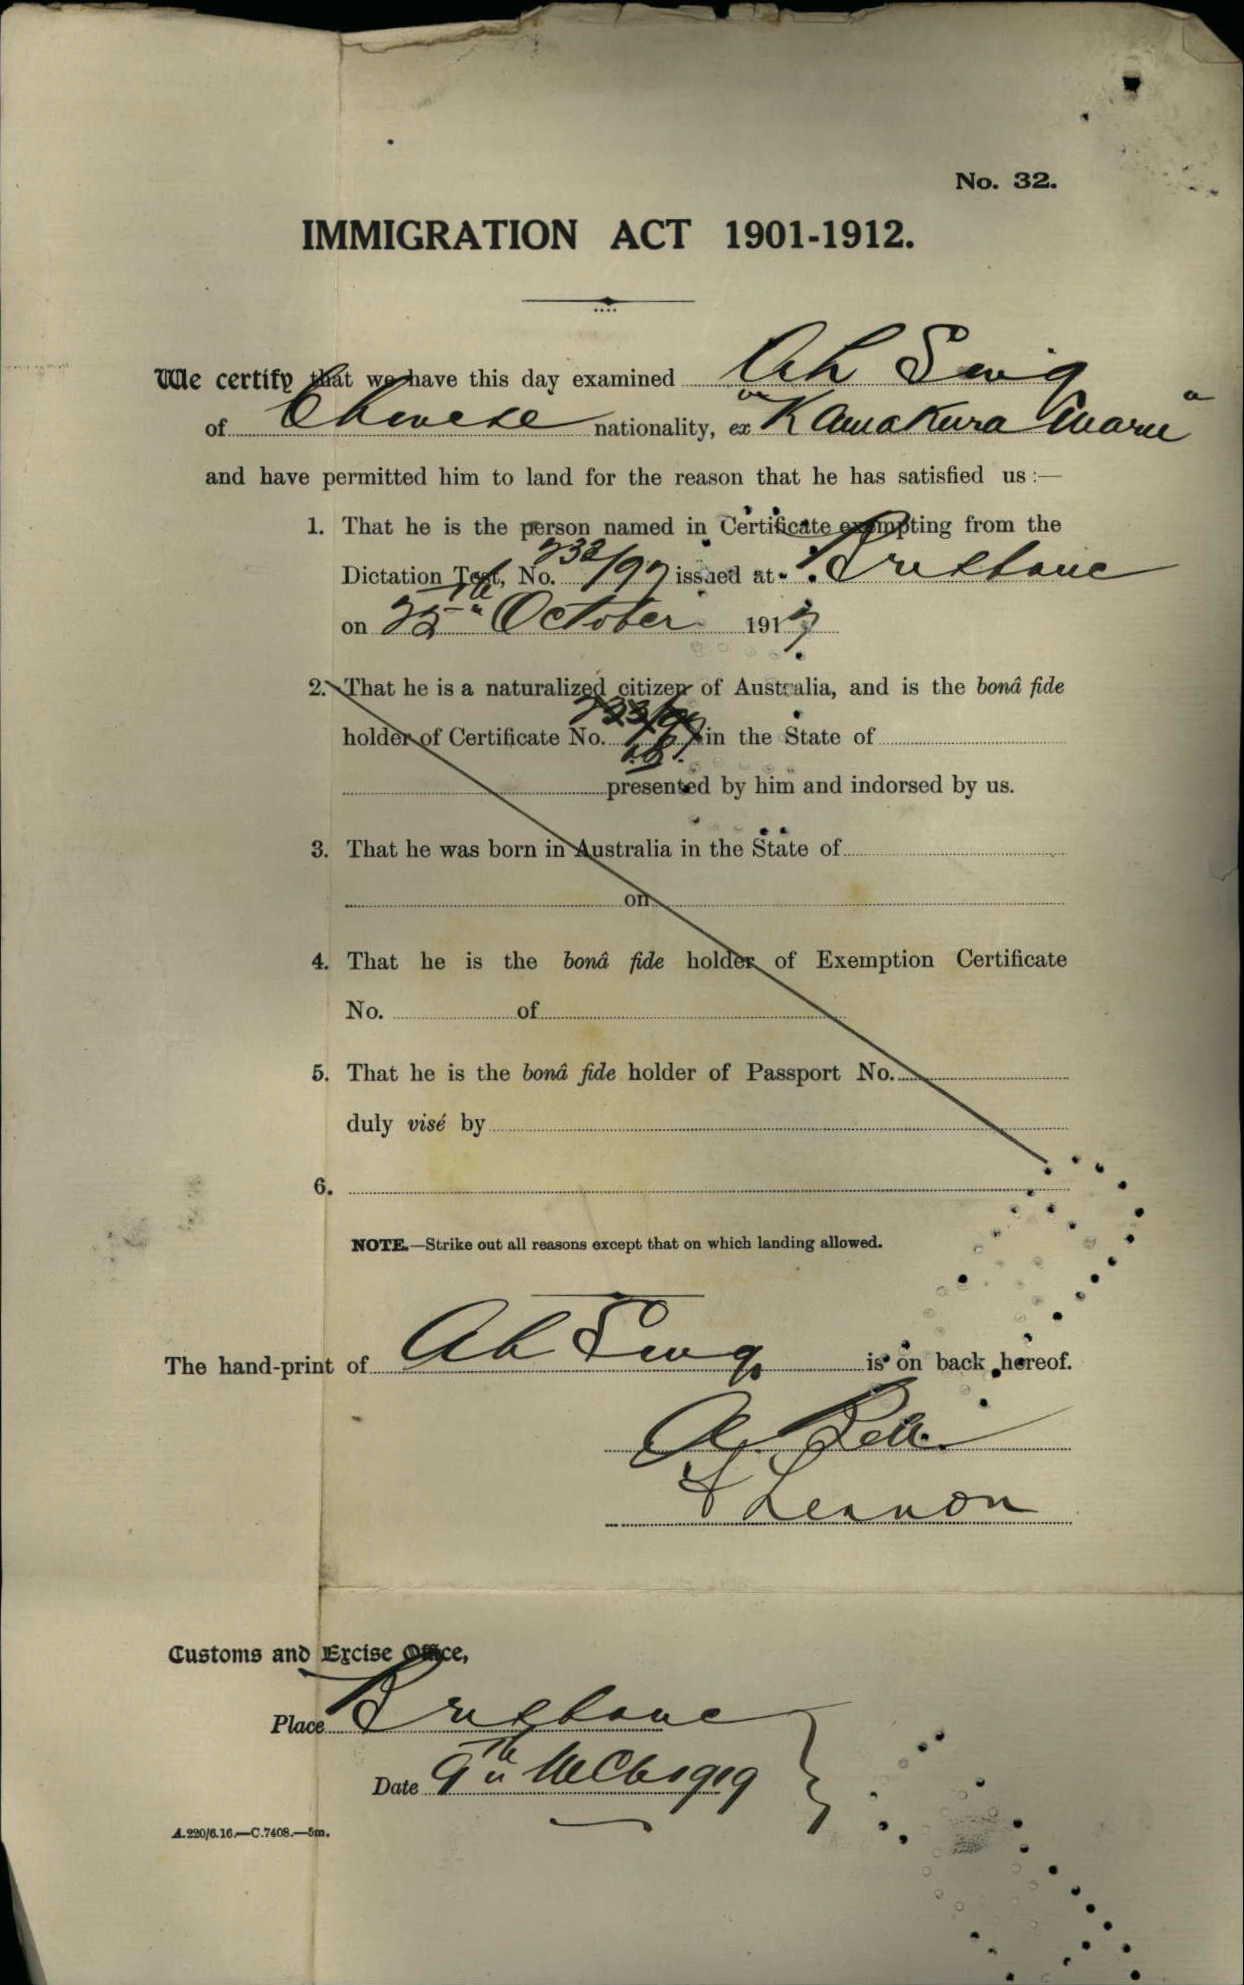 No. 32.
IMMIGRATION ACT 1901-1912.
We certify that we have this day examined Ah Sing
of Chinese nationality, ex "Kamakura Maru"
and have permitted him to land for the reason that he has satisfied us :—
1. That he is the person named in Certificate exempting from the
Dictation Test, No. 232/97 issued at Brisbane
on 25th October 1917
2. That he is a naturalized citizen of Australia, and is the bonâ fide
holder of Certificate No. in the State of
presented by him and indorsed by us.
3. That he was born in Australia in the State of
on
4. That he is the bonâ fide holder of Exemption Certificate
No. of
5. That he is the bonâ fide holder of Passport No.
duly visé by
6.
NOTE.—Strike out all reasons except that on which landing allowed.
The hand-print of Ah Sing is on back hereof.
A. Bell
Lennon
Customs and Excise Office,
Place Brisbane
Date 9th 1919
A.220/6.16.—C.7408.—5m.